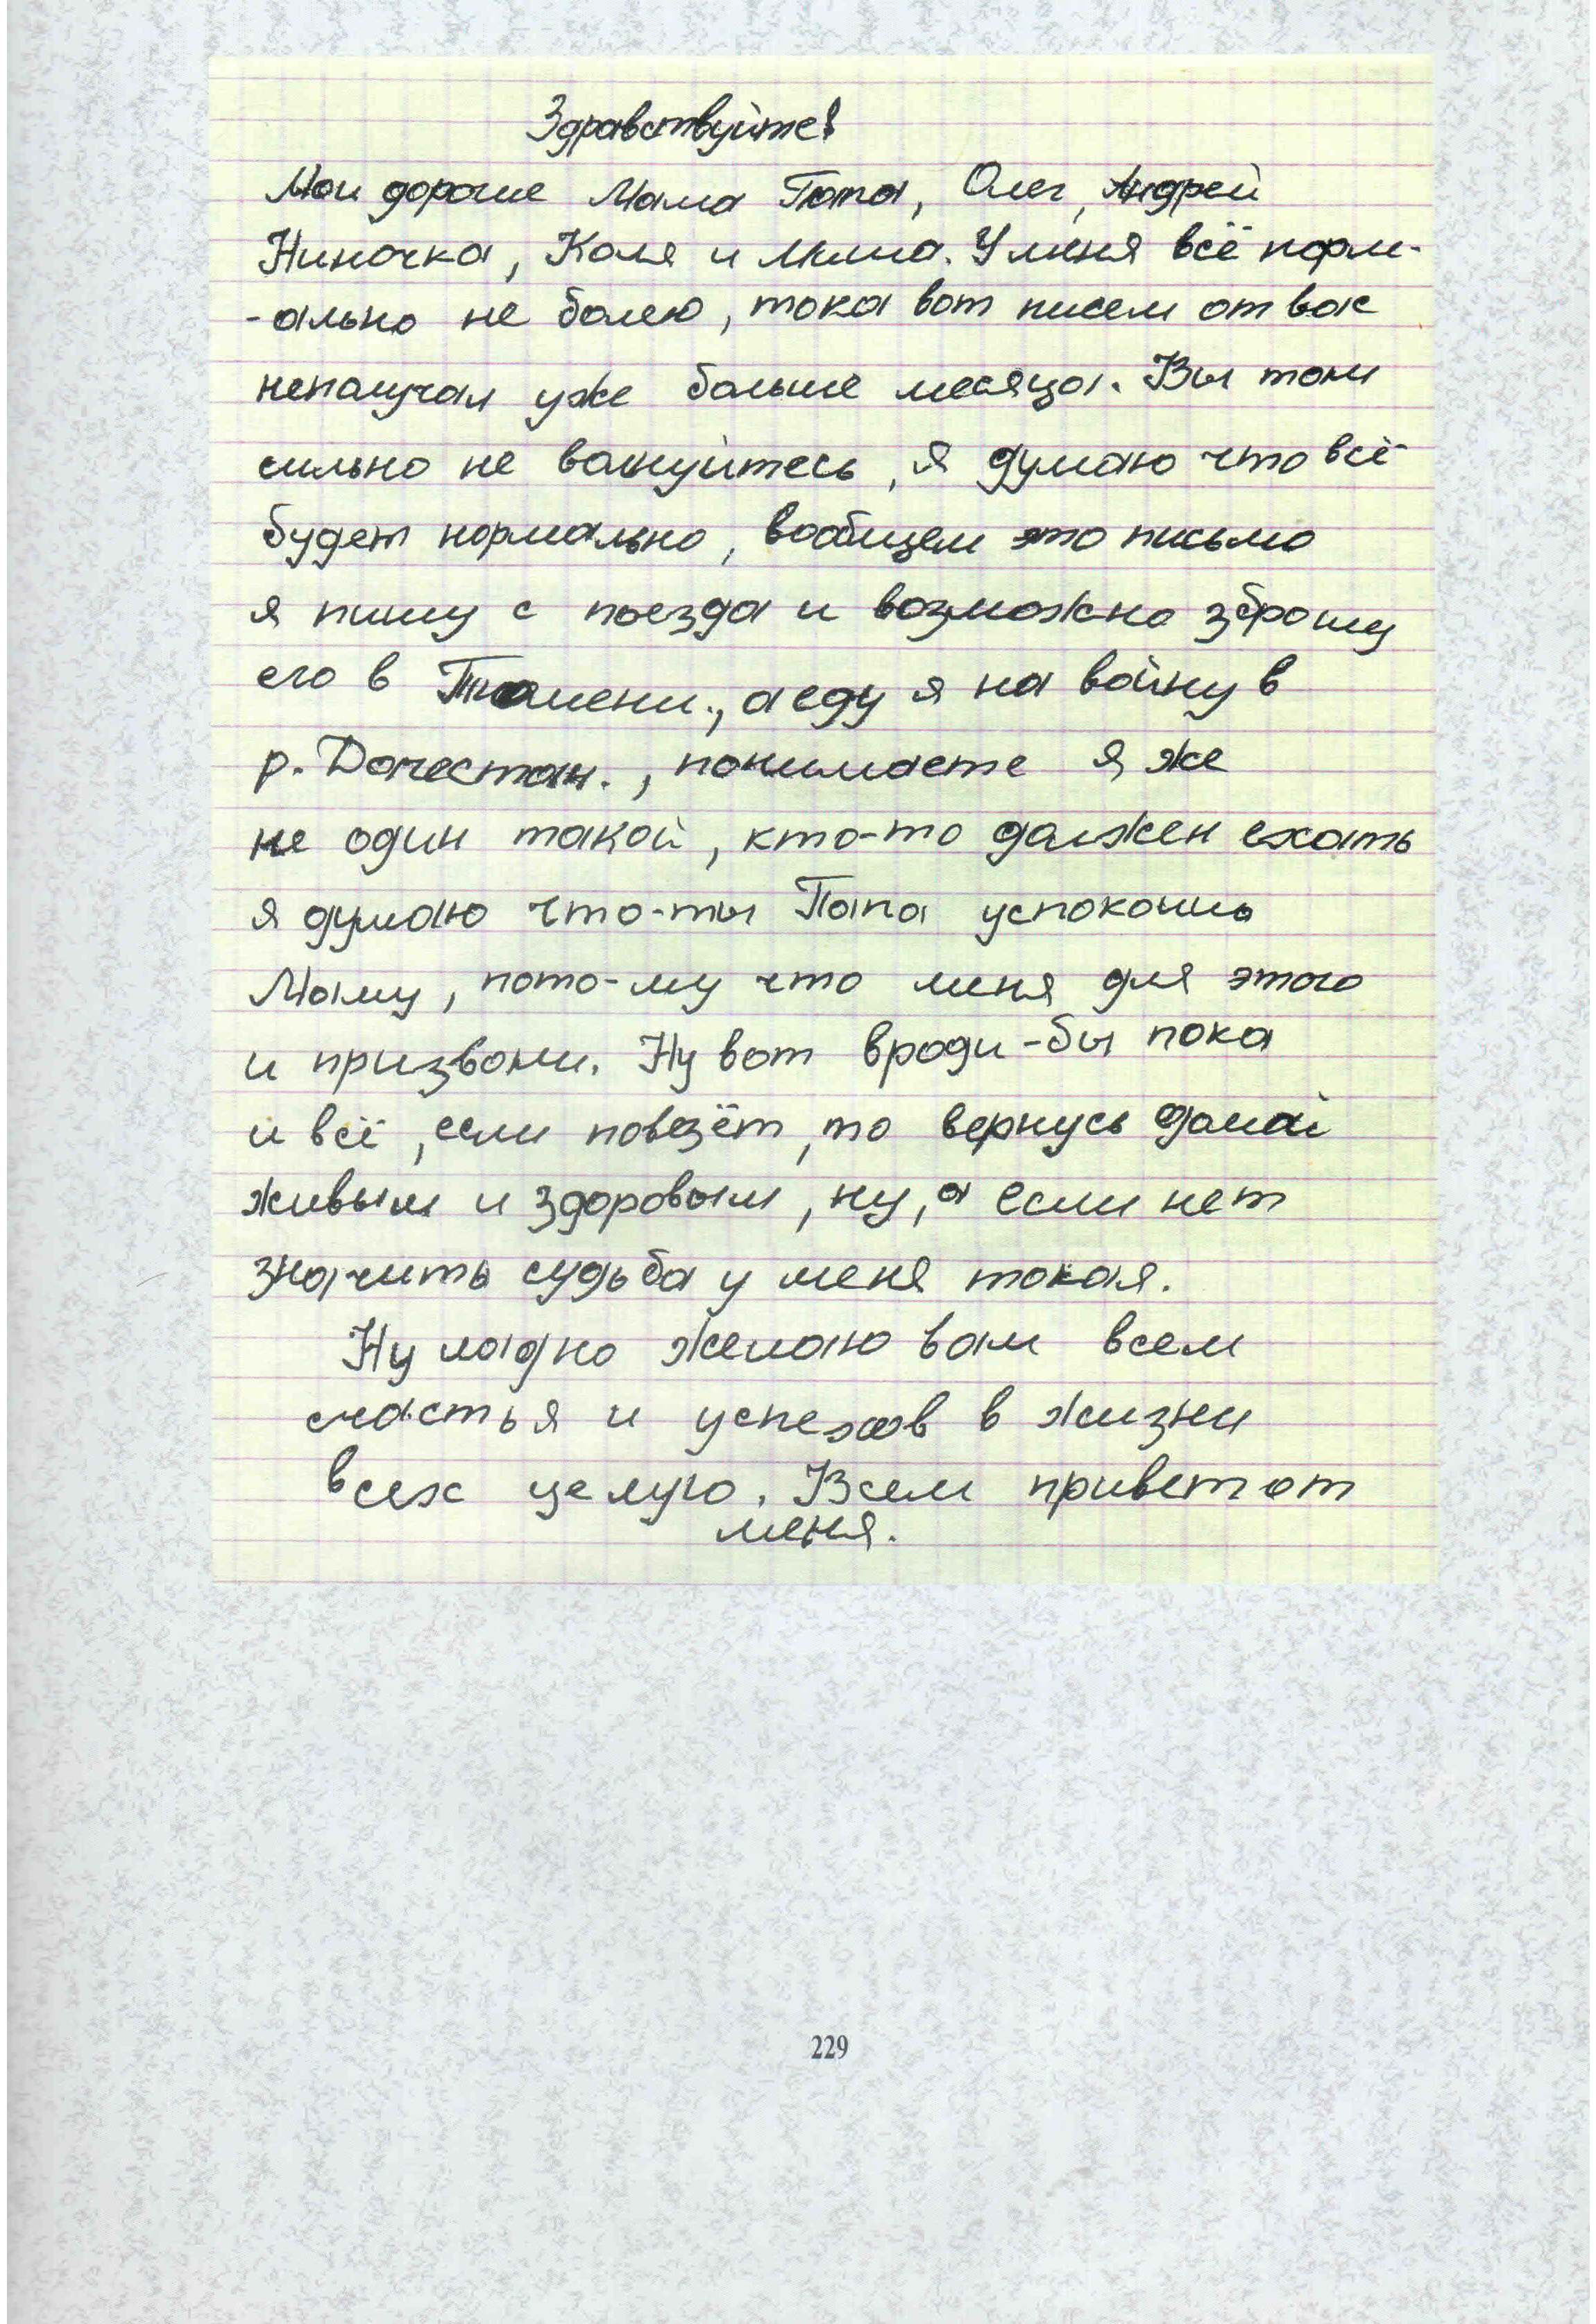 Здравствуйте!
Мои дорогие Мама Папа, Олег, Андрей
Ниночка, Коля и Миша. У меня всё норм-
-ально не болею, тока вот писем от вас
неполучал уже больше месяца. Вы там
сильно не волнуйтесь, я думаю что всё
будет нормально, вообщем это письмо
я пишу с поезда и возможно зброшу
его в Тюмени., а еду я на войну в
р. Дагестан., понимаете я же
не один такой, кто-то должен ехать
я думаю что-ты Папа успокоишь
Маму, пото-му что меня для этого
и призвали. Ну вот вроди-бы пока
и всё, если повезёт, то вернусь домой
живым и здоровым, ну, а если нет
значить судьба у меня такая.
Ну ладно желаю вам всем
счастья и успехов в жизни
всех целую. Всем привет от
меня.
229